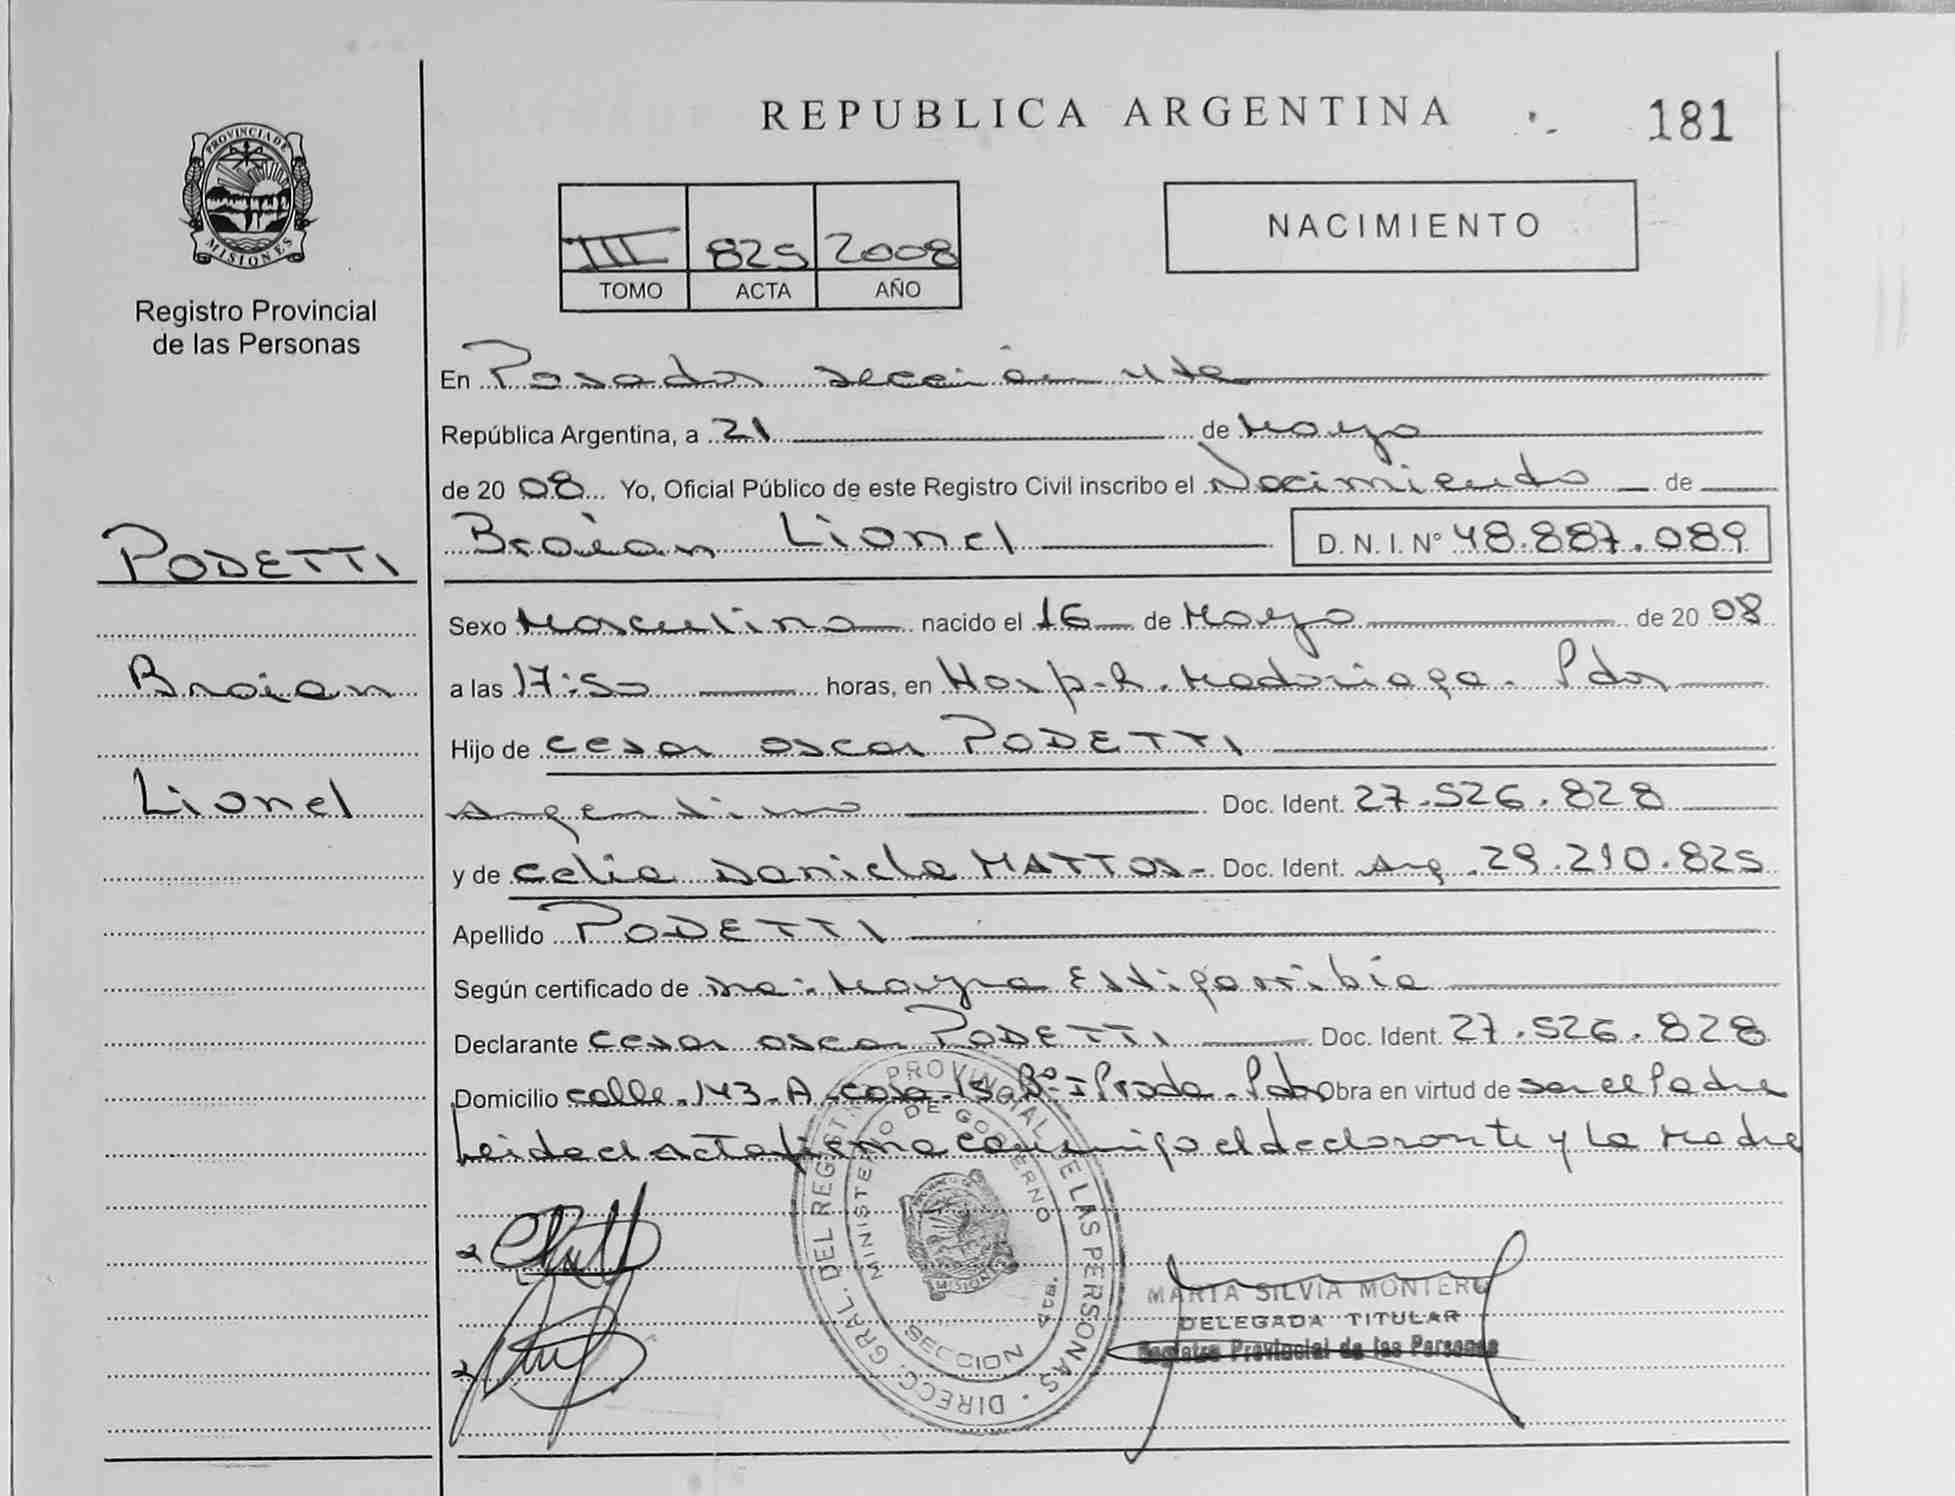 REPUBLICA ARGENTINA
181
PROVINCIA DE
MISIONES
Registro Provincial
de las Personas
III 825 2008
TOMO ACTA AÑO
NACIMIENTO
En Posadas sección 4ta
República Argentina, a 21 de Mayo
de 20 08 Yo, Oficial Público de este Registro Civil inscribo el Nacimiento de
PODETTI
Braian
Lionel
Braian Lionel D. N. I. N° 48.887.089
Sexo Masculino nacido el 16 de Mayo de 20 08
a las 17:50 horas, en Hosp. R. Madariaga. Pdas
Hijo de Cesar Oscar PODETTI
Argentino Doc. Ident. 27.526.828
y de Celia Daniela MATTOS- Doc. Ident. Arg. 29.210.825
Apellido PODETTI
Según certificado de Dra. Mayra Estigarribia
Declarante Cesar Oscar PODETTI Doc. Ident. 27.526.828
Domicilio calle 143-A-casa-15 B° I Prada. Pdas Obra en virtud de ser el Padre
Leida el Acta firma conmigo el declarante y La Madre
DIRECC. GRAL. DEL REGISTRO PROVINCIAL DE LAS PERSONAS
MINISTERIO DE GOBIERNO
MISIONES
SECCION 4ta.
MARTA SILVIA MONTERO
DELEGADA TITULAR
Registro Provincial de las Personas